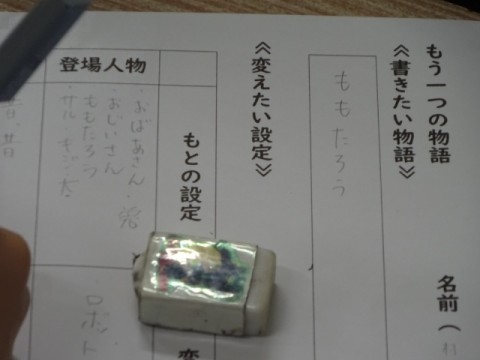 もう一つの物語
名前（
≪書きたい物語≫
ももたろう
≪変えたい設定≫
もとの設定
変
登場人物
・おばあさん
・おじいさん
ももたろう
・サル・キジ・犬
ロボット
昔・昔